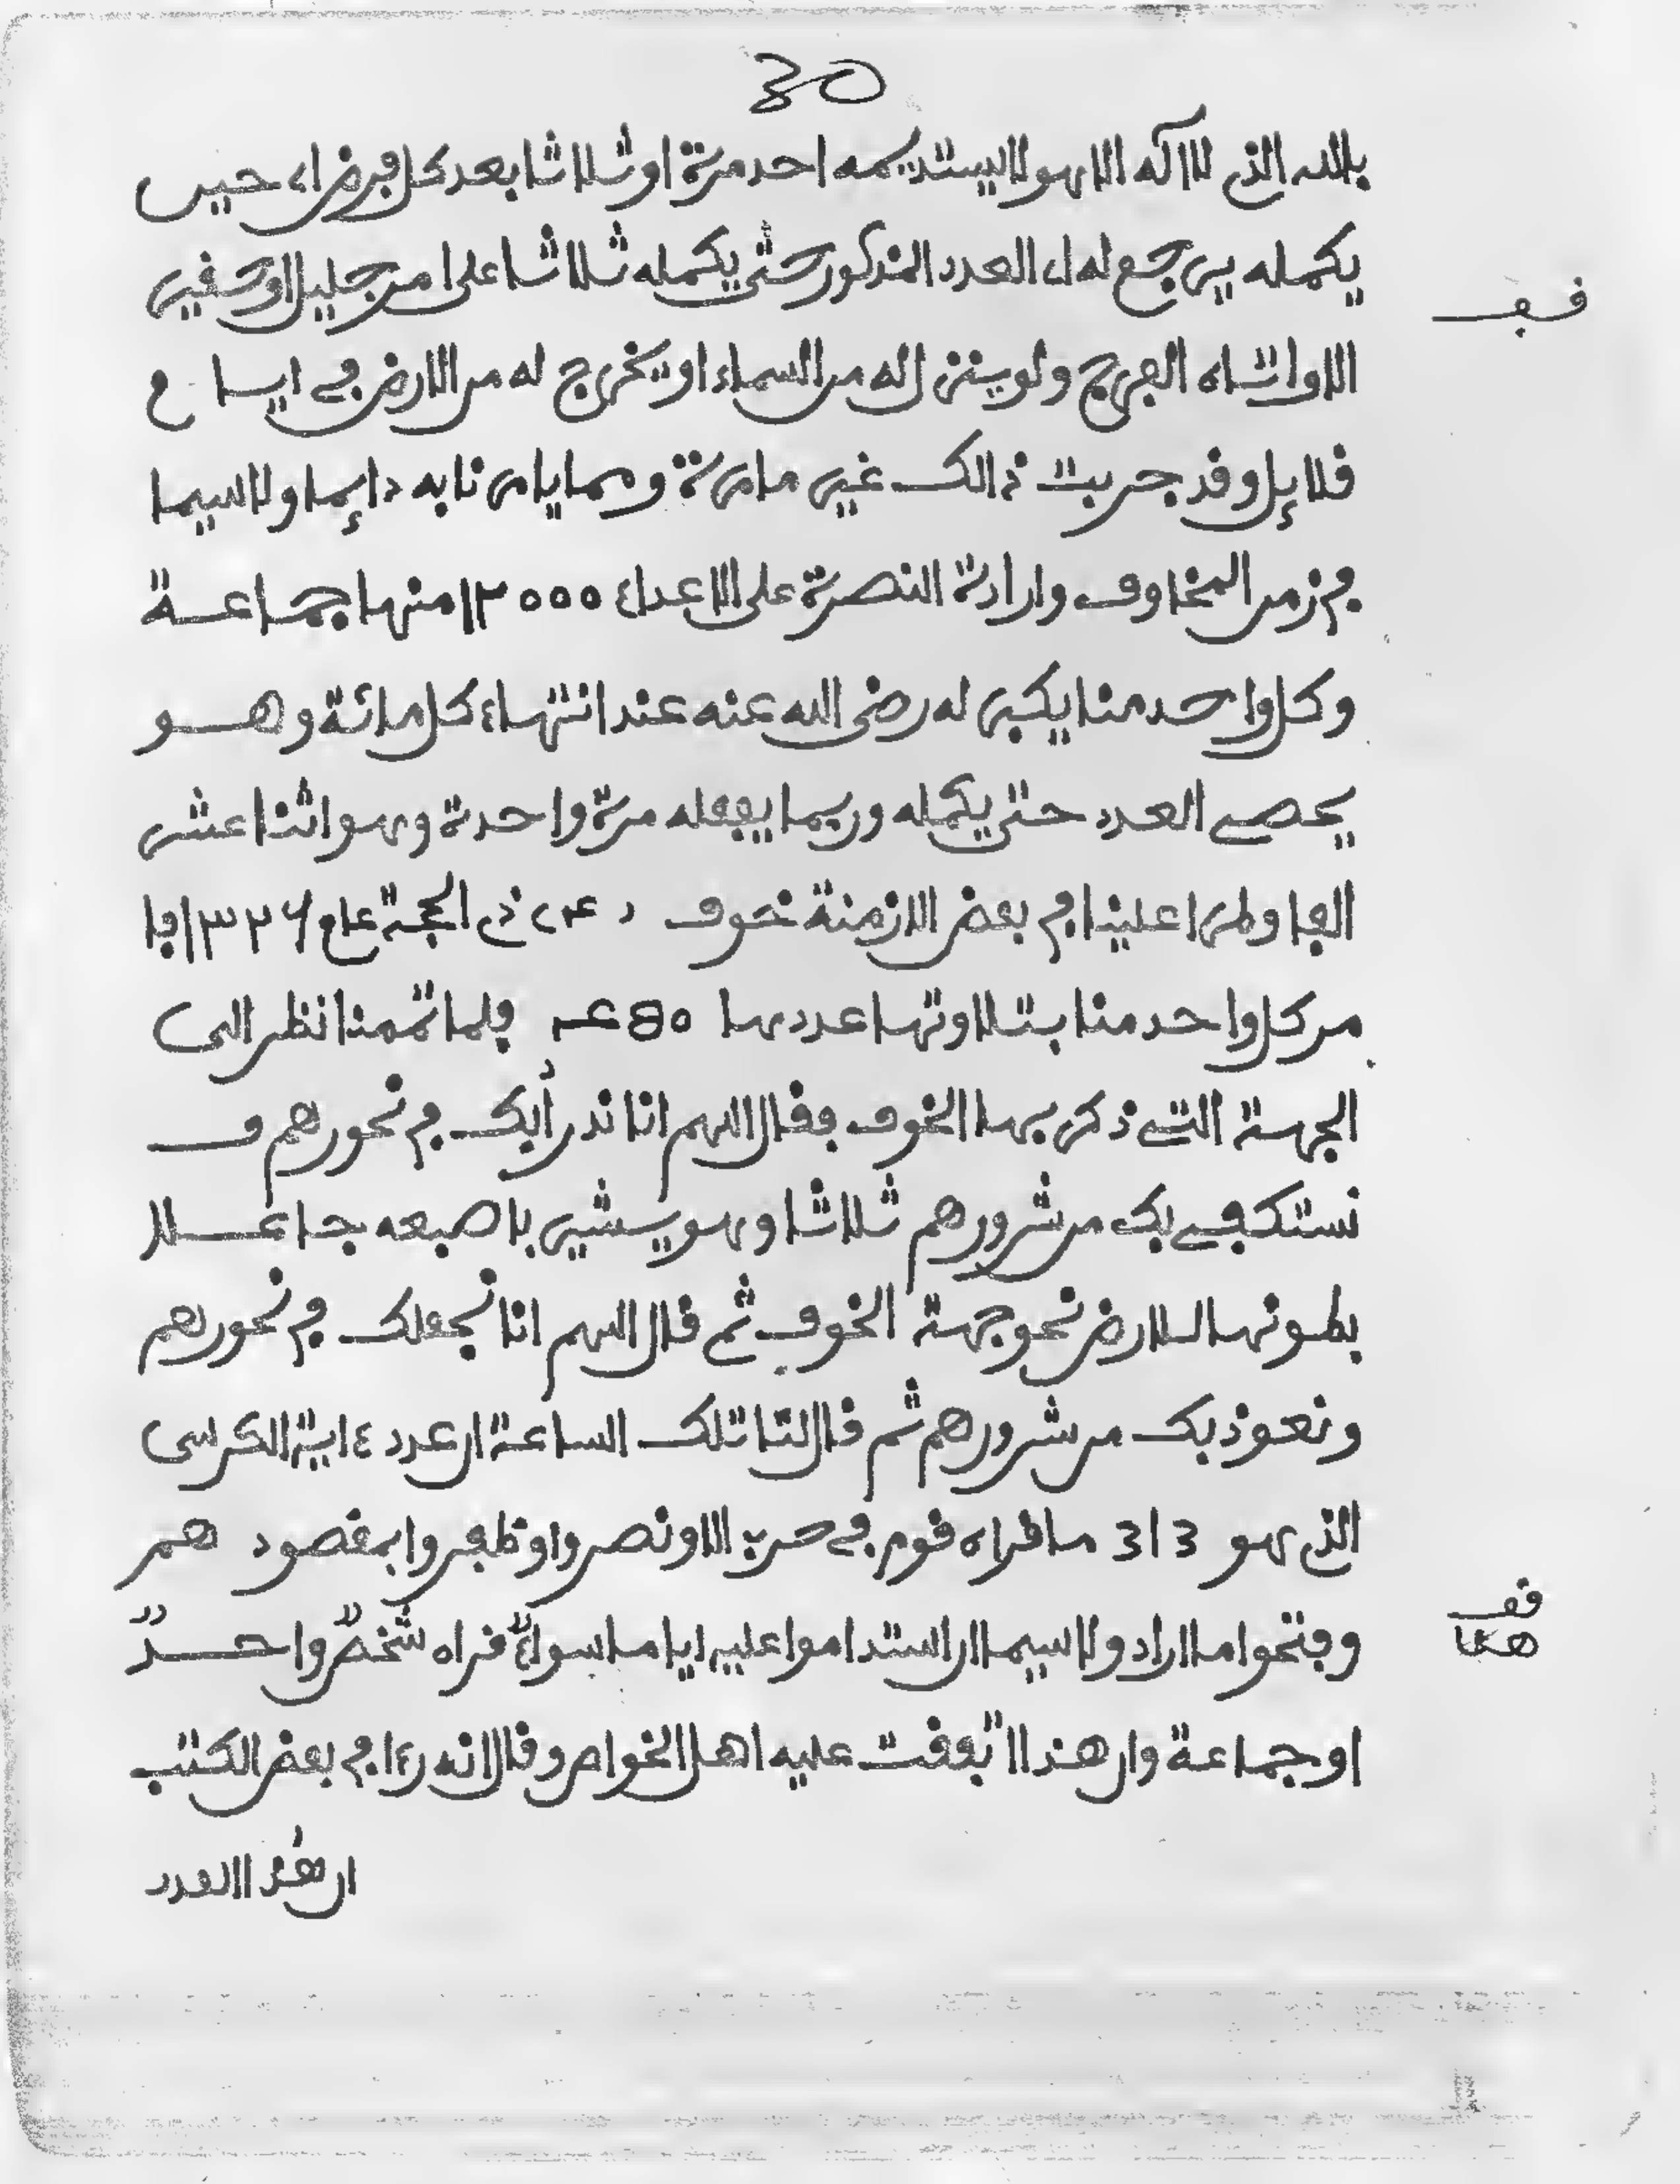 30
بالله الذي لا اله الا هو لا يستديمه احد مرة او ثلاثا بعد كل فرض اي حين
يكمله يرجع له اي العدد المذكور حتى يكمله ثلاثا على امر جليل او حفير
قف
الا واتاه الفرج ولو ينزل له من السماء او يخرج له من الارض في ايسا ع
قلايل وقد جربت ذالك غير ما مرة ومما يامرنا به دايما ولا سيما
في زمن المخاوف وارادة النصرة على الاعداء ١٢٠٠٠ منها جماعة
وكل واحد منا يكبر له رضي الله عنه عند انتهاء كل مائة وهو
يحصي العدد حتى يكمله وربما يفعله مرة واحدة وهو اثنا عشر
الفا وطرا علينا في بعض الازمنة خوف ذي الحجة عام ١٣٢٦ فا
من كل واحد منا بتلاوتها عددها فلما تممنا نظر الى
الجهة التي ذكر بها الخوف فقال اللهم انا ندرأ بك في نحورهم و
نستكفي بك من شرورهم ثلاثا وهو يشير باصبعه جاعلا
بطونها للارض نحو جهة الخوف ثم قال اللهم انا نجعلك في نحورهم
ونعوذ بك من شرورهم ثم قال لنا تلك الساعة ان عدد ءاية الكرسي
الذي هو 313 ما قراه قوم في حرب الا ونصروا وظفروا بمقصود هم
وفتحوا ما ارادو ولا سيما ان استداموا عليه اياما سواء قراه شخص واحد
قف
هنا
او جماعة وان هذا اتفقت عليه اهل الخواص وقال انه رءا في بعض الكتب
ان هذا العدد